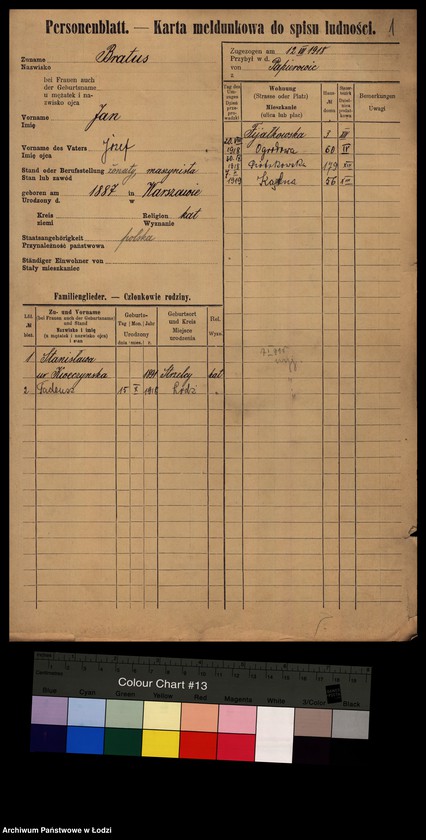 Personenblatt. — Karta meldunkowa do spisu ludności.
1
Zuname
Nazwisko
Bratus
bei Frauen auch
der Geburtsname
u mężatek i na-
zwisko ojca
Vorname
Imię
Jan
Vorname des Vaters
Imię ojca
Józef
Stand oder Berufsstellung
Stan lub zawód
żonaty, maszynista
geboren am 1887 in Warszawie
Urodzony d. w
Kreis
ziemi
Religion
Wyznanie
kat
Staatsangehörigkeit
Przynależność państwowa
polska
Ständiger Einwohner von
Stały mieszkaniec
Zugezogen am 12 III 1918
Przybył w d.
von
z
Tag des
Wohnung
(Strasse oder Platz)
Mieszkanie
(ulica lub plac)
Haus-
№
domu
Bemerkungen
Uwagi
Fijałkowska 3 III
1918 Ogrodowa 60 IV
1918 Piotrkowska 179
1919 Kątna 56
Familienglieder. — Członkowie rodziny.
Lfd.
№
bież.
Zu- und Vorname
(bei Frauen auch der Geburtsname)
und Stand
Nazwisko i imię
(u mężatek i nazwisko ojca)
i stan
Geburts-
Tag Mon. Jahr
Urodzony
dnia mies. r.
Geburtsort
und Kreis
Miejsce
urodzenia
Rel.
Wyzn.
1 Stanisława
ur. 1891 Strzelcy kat
2 Tadeusz 15 X 1918 Łodzi "
Inches
Centimetres
Colour Chart #13
Blue Cyan Green Yellow Red Magenta White 3/Color Black
Archiwum Państwowe w Łodzi